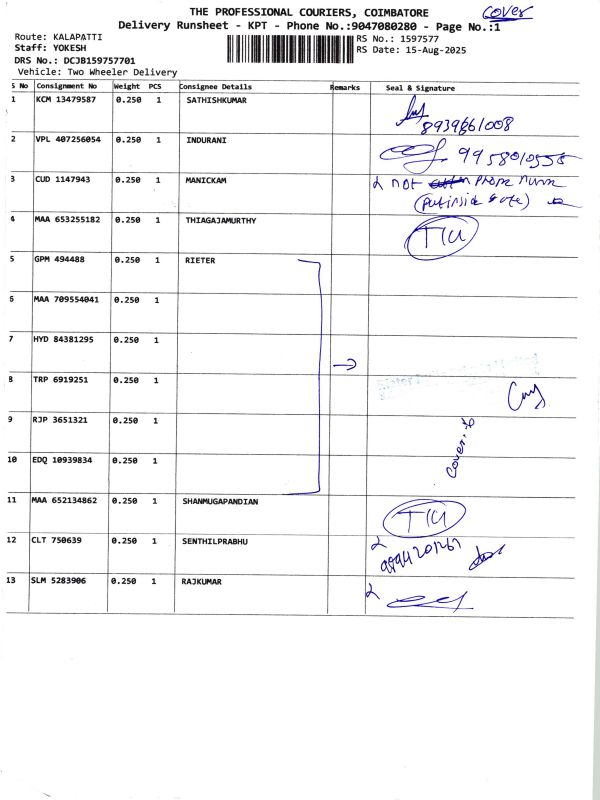 THE PROFESSIONAL COURIERS, COIMBATORE
cover
Delivery Runsheet - KPT - Phone No.:9047080280 - Page No.:1
Route: KALAPATTI
RS No.: 1597577
Staff: YOKESH
RS Date: 15-Aug-2025
DRS No.: DCJB159757701
Vehicle: Two Wheeler Delivery
S No Consignment No Weight PCS Consignee Details Remarks Seal & Signature
1 KCM 13479587 0.250 1 SATHISHKUMAR
2 VPL 407256054 0.250 1 INDURANI
3 CUD 1147943 0.250 1 MANICKAM not
(put inside gate)
4 MAA 653255182 0.250 1 THIAGAJAMURTHY
5 GPM 494488 0.250 1 RIETER
6 MAA 709554041 0.250 1
7 HYD 84381295 0.250 1
8 TRP 6919251 0.250 1
9 RJP 3651321 0.250 1
10 EDQ 10939834 0.250 1
cover: 6
11 MAA 652134862 0.250 1 SHANMUGAPANDIAN
12 CLT 750639 0.250 1 SENTHILPRABHU
13 SLM 5283906 0.250 1 RAJKUMAR